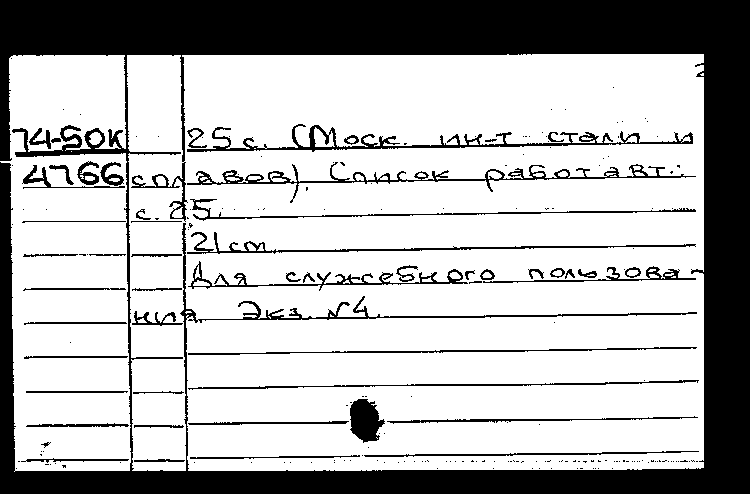 2
74-50К 25 с. (Моск. ин-т стали и
4766 сплавов). Список работ авт.:
с. 25.
21 cm
Для служебного пользова-
ния. Экз. №4.